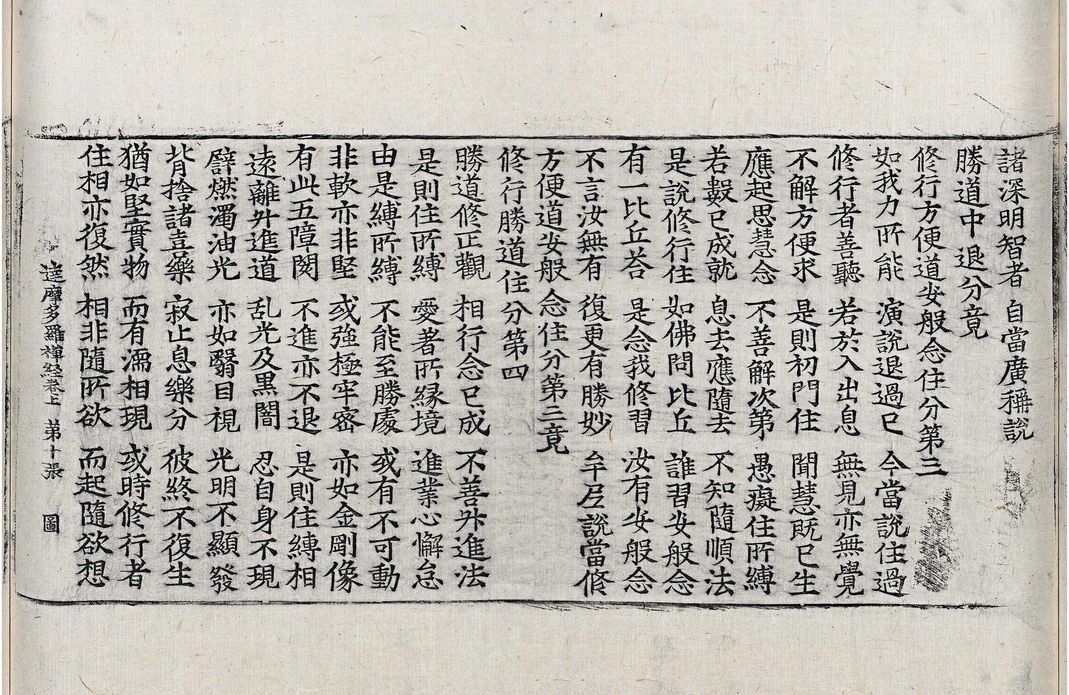 諸深明智者 自當廣稱說
勝道中 退分竟
修行方便道安般念住分第三
如我力所能 演說退過已 今當說住過
修行者善聽 若於入出息 無見亦無覺
不解方便求 是則初門住 聞慧旣已生
應起思慧念 不善解次第 愚癡住所縛
若數已成就 息去應隨去 不知隨順法
是說修行住 如佛問比丘 誰習安般念
有一比丘荅 是念我修習 汝有安般念
不言汝無有 復更有勝妙 牟尼說當修
方便道安般念住分第三竟
修行勝道住分第四
勝道修正觀 相行念已成 不善升進法
是則住所縛 愛著所縁境 進業心懈怠
由是縛所縛 不能至勝處 或有不可動
非軟亦非堅 或強極牢密 亦如金剛像
有此五障閡 不進亦不退 是則住縛相
遠離升進道 乱光及黒闇 忍自身不現
譬燃濁油光 亦如翳目視 光明不顯發
背捨諸喜藥 寂止息樂分 彼終不復生
猶如堅實物 而有濡相現 或時修行者
住相亦復然 相非隨所欲 而起隨欲想
達摩多羅禪經卷上 第十張 圖